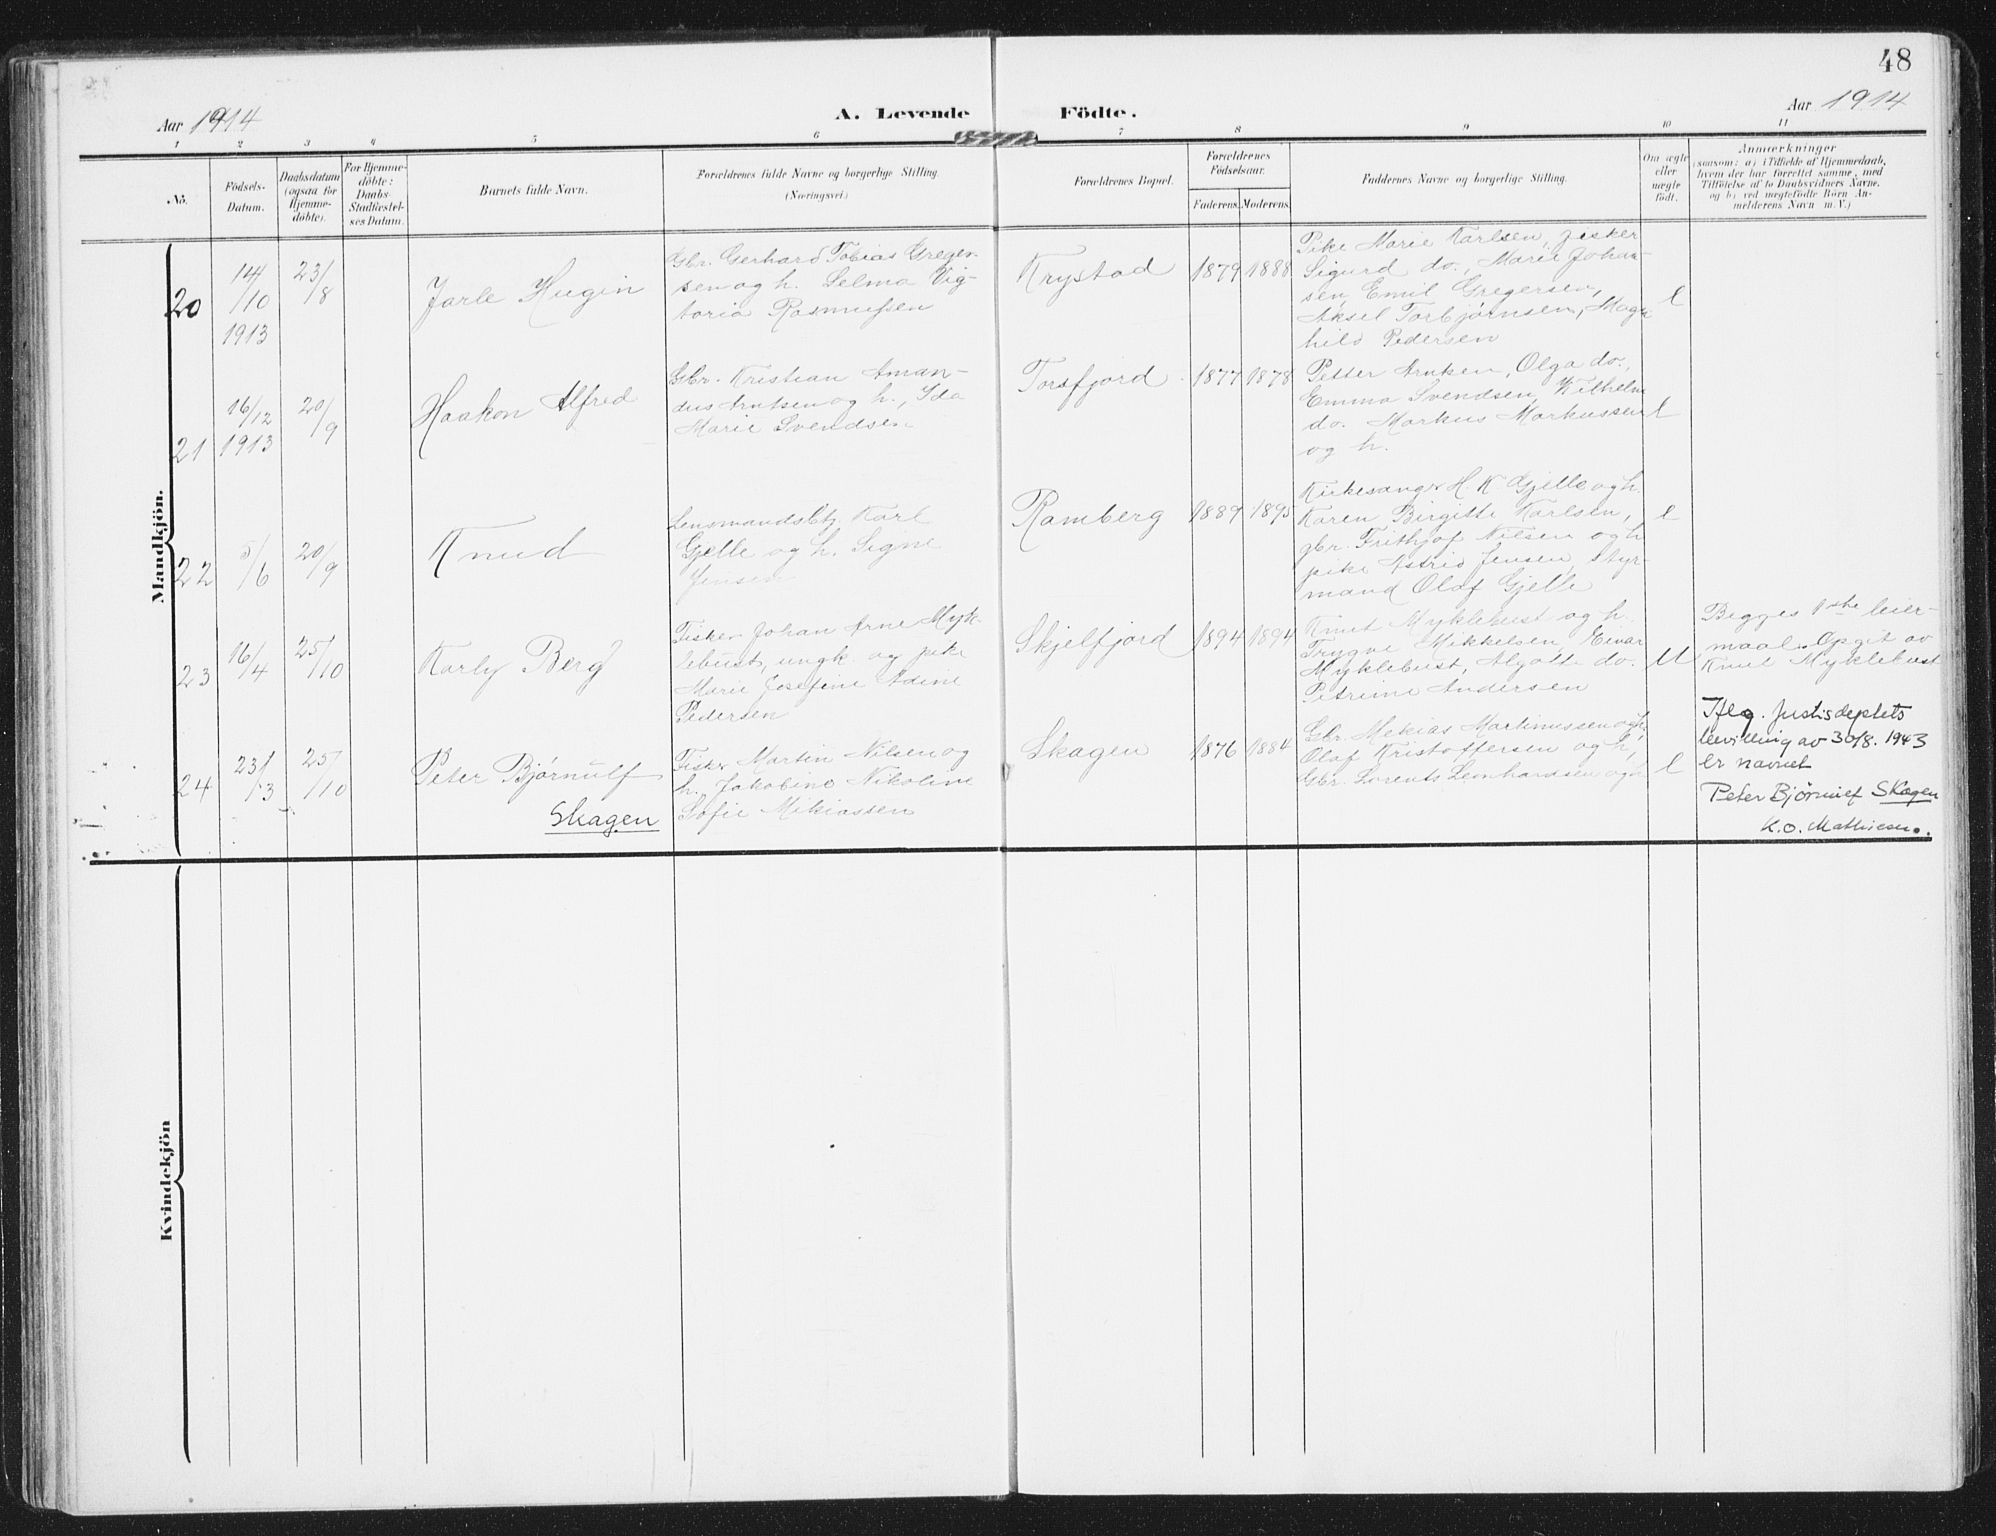 48
Aar 1914
A. Levende Födte.
Aar 1914
1 2 3 4 5 6 7 8 9 10 11
No.
Födsels-
Datum.
Daabsdatum
(ogsaa for
Hjemme-
döbte).
For Hjemme-
döbte:
Daabs-
Stadfæstel-
ses Datum.
Barnets fulde Navn.
Forældrenes fulde Navne og borgerlige Stilling.
(Næringsvei.)
Forældrenes Bopæl.
Forældrenes
Födselsaar.
Faderens. Moderens.
Faddernes Navne og borgerlige Stilling.
Om ægte
eller
uægte
födt.
Anmærkninger
(saasom: a) i Tilfælde af Hjemmedaab,
hvem der har forrettet samme, med
Tilföielse af to Daabsvidners Navne,
og b) ved uægtefödte Börn An-
melderens Navn m. V.)
Mandkjön.
20
14/10
1913
23/8
Jarle Hugin
Gbr. Gerhard Tobias Greger-
sen og h. Selma Vig-
toria Rasmussen
Krystad
1879 1888
Pike Marie Karlsen, fisker
Sigurd do., Marie Johan-
sen, Emil Gregersen,
Aksel Torbjørnsen, Magn-
hild Pedersen
21
16/12
1913
20/9
Haakon Alfred
Gbr. Kristian Aman-
dus Arntsen og h., Ida
Marie Svendsen
Torsfjord
1877 1878
Petter Arntsen, Olga do.,
Emma Svendsen, Wilhelm
do. Markus Markussen
og h.
22
5/6
20/9
Knud
Lensmandsbtj. Karl
Gjelle og h. Signe
Jensen
Ramberg
1889 1895
Kirkesanger H. K. Gjelle og h.
Karen Birgitte Karlsen,
gbr. Frithjof Nilsen og h
pike Astrid Jensen, Styr-
mand Olaf Gjelle
23
16/4
25/10
Karly Berg
Fisker Johan Arne Myk-
lebust, ungk. og pike
Marie Josefine Adine
Pedersen
Skjelfjord
1894 1894
Knut Myklebust og h.
Trygve Mikkelsen, Einar
Myklebust, do.
Petrine Andersen
U
Begges 1ste leier-
maal. Opgit av
Knut Myklebust
24
23/3
25/10
Peter Bjørnulf
Skagen
Fisker Martin Nilsen og
h. Jakobine Nikoline
Sofie Mikiassen
Skagen
1876 1884
Gbr. Mekias Martinussen og h,
Olaf Kristoffersen og h,
Gbr. Lorents Leonhardsen og h
Iflg. Justisdeptets
bevilling av 30/8. 1943
er navnet
Peter Bjørnulf Skagen
K.O. Mathiesen.
Kvindekjön